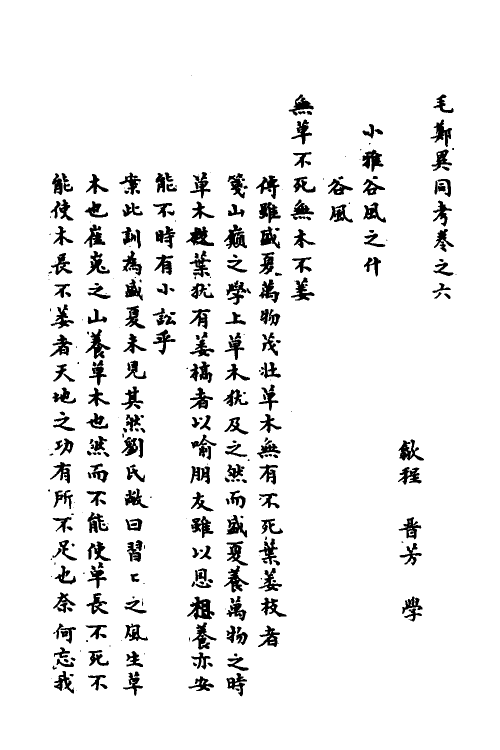 毛鄭異同考卷之六
歙程 晉芳 學
小雅谷風之什
谷風
無草不死無木不萎
傳雖盛夏萬物茂壯草木無有不死葉萎枝者
箋山巔之學上草木犹及之然而盛夏養萬物之時
草木枝葉犹有萎槁者以喻朋友雖以恩相養亦安
能不時有小訟乎
案此訓為盛夏未見其然劉氏敞曰習〻之風生草
木也崔嵬之山養草木也然而不能使草長不死不
能使木長不萎者天地之功有所不足也奈何忘我